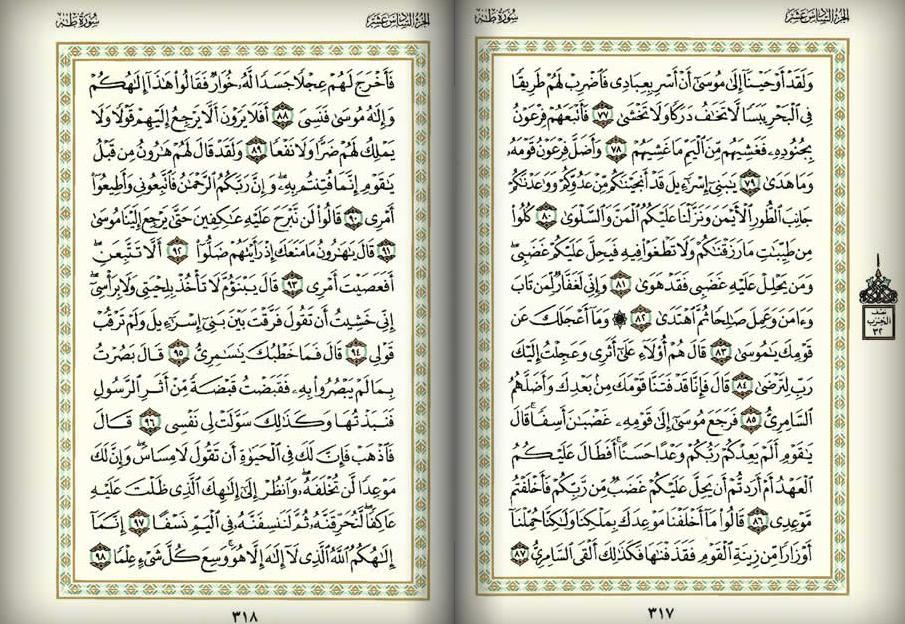 الجزء السادس عشر
سورة طه
وَلَقَدْ أَوْحَيْنَآ إِلَىٰ مُوسَىٰٓ أَنْ أَسْرِ بِعِبَادِى فَٱضْرِبْ لَهُمْ طَرِيقًا
فِى ٱلْبَحْرِ يَبَسًا لَّا تَخَٰفُ دَرَكًا وَلَا تَخْشَىٰ ٧٧ فَأَتْبَعَهُمْ فِرْعَوْنُ
بِجُنُودِهِۦ فَغَشِيَهُم مِّنَ ٱلْيَمِّ مَا غَشِيَهُمْ ٧٨ وَأَضَلَّ فِرْعَوْنُ قَوْمَهُۥ
وَمَا هَدَىٰ ٧٩ يَٰبَنِىٓ إِسْرَٰٓءِيلَ قَدْ أَنجَيْنَٰكُم مِّنْ عَدُوِّكُمْ وَوَٰعَدْنَٰكُمْ
جَانِبَ ٱلطُّورِ ٱلْأَيْمَنَ وَنَزَّلْنَا عَلَيْكُمُ ٱلْمَنَّ وَٱلسَّلْوَىٰ ٨٠ كُلُوا۟
مِن طَيِّبَٰتِ مَا رَزَقْنَٰكُمْ وَلَا تَطْغَوْا۟ فِيهِ فَيَحِلَّ عَلَيْكُمْ غَضَبِى ۖ
وَمَن يَحْلِلْ عَلَيْهِ غَضَبِى فَقَدْ هَوَىٰ ٨١ وَإِنِّى لَغَفَّارٌ لِّمَن تَابَ
وَءَامَنَ وَعَمِلَ صَٰلِحًا ثُمَّ ٱهْتَدَىٰ ٨٢ ۞ وَمَآ أَعْجَلَكَ عَن
قَوْمِكَ يَٰمُوسَىٰ ٨٣ قَالَ هُمْ أُو۟لَآءِ عَلَىٰٓ أَثَرِى وَعَجِلْتُ إِلَيْكَ
رَبِّ لِتَرْضَىٰ ٨٤ قَالَ فَإِنَّا قَدْ فَتَنَّا قَوْمَكَ مِنۢ بَعْدِكَ وَأَضَلَّهُمُ
ٱلسَّامِرِىُّ ٨٥ فَرَجَعَ مُوسَىٰٓ إِلَىٰ قَوْمِهِۦ غَضْبَٰنَ أَسِفًا ۚ قَالَ
يَٰقَوْمِ أَلَمْ يَعِدْكُمْ رَبُّكُمْ وَعْدًا حَسَنًا ۚ أَفَطَالَ عَلَيْكُمُ
ٱلْعَهْدُ أَمْ أَرَدتُّمْ أَن يَحِلَّ عَلَيْكُمْ غَضَبٌ مِّن رَّبِّكُمْ فَأَخْلَفْتُم
مَّوْعِدِى ٨٦ قَالُوا۟ مَآ أَخْلَفْنَا مَوْعِدَكَ بِمَلْكِنَا وَلَٰكِنَّا حُمِّلْنَآ
أَوْزَارًا مِّن زِينَةِ ٱلْقَوْمِ فَقَذَفْنَٰهَا فَكَذَٰلِكَ أَلْقَى ٱلسَّامِرِىُّ ٨٧
نصف
الحزب
٣٢
٣١٧
الجزء السادس عشر
سورة طه
فَأَخْرَجَ لَهُمْ عِجْلًا جَسَدًا لَّهُۥ خُوَارٌ فَقَالُوا۟ هَٰذَآ إِلَٰهُكُمْ
وَإِلَٰهُ مُوسَىٰ فَنَسِىَ ٨٨ أَفَلَا يَرَوْنَ أَلَّا يَرْجِعُ إِلَيْهِمْ قَوْلًا وَلَا
يَمْلِكُ لَهُمْ ضَرًّا وَلَا نَفْعًا ٨٩ وَلَقَدْ قَالَ لَهُمْ هَٰرُونُ مِن قَبْلُ
يَٰقَوْمِ إِنَّمَا فُتِنتُم بِهِۦ ۖ وَإِنَّ رَبَّكُمُ ٱلرَّحْمَٰنُ فَٱتَّبِعُونِى وَأَطِيعُوٓا۟
أَمْرِى ٩٠ قَالُوا۟ لَن نَّبْرَحَ عَلَيْهِ عَٰكِفِينَ حَتَّىٰ يَرْجِعَ إِلَيْنَا مُوسَىٰ
٩١ قَالَ يَٰهَٰرُونُ مَا مَنَعَكَ إِذْ رَأَيْتَهُمْ ضَلُّوٓا۟ ٩٢ أَلَّا تَتَّبِعَنِ ۖ
أَفَعَصَيْتَ أَمْرِى ٩٣ قَالَ يَبْنَؤُمَّ لَا تَأْخُذْ بِلِحْيَتِى وَلَا بِرَأْسِىٓ ۖ
إِنِّى خَشِيتُ أَن تَقُولَ فَرَّقْتَ بَيْنَ بَنِىٓ إِسْرَٰٓءِيلَ وَلَمْ تَرْقُبْ
قَوْلِى ٩٤ قَالَ فَمَا خَطْبُكَ يَٰسَٰمِرِىُّ ٩٥ قَالَ بَصُرْتُ
بِمَا لَمْ يَبْصُرُوا۟ بِهِۦ فَقَبَضْتُ قَبْضَةً مِّنْ أَثَرِ ٱلرَّسُولِ
فَنَبَذْتُهَا وَكَذَٰلِكَ سَوَّلَتْ لِى نَفْسِى ٩٦ قَالَ
فَٱذْهَبْ فَإِنَّ لَكَ فِى ٱلْحَيَوٰةِ أَن تَقُولَ لَا مِسَاسَ ۖ وَإِنَّ لَكَ
مَوْعِدًا لَّن تُخْلَفَهُۥ ۖ وَٱنظُرْ إِلَىٰٓ إِلَٰهِكَ ٱلَّذِى ظَلْتَ عَلَيْهِ
عَاكِفًا ۖ لَّنُحَرِّقَنَّهُۥ ثُمَّ لَنَنسِفَنَّهُۥ فِى ٱلْيَمِّ نَسْفًا ٩٧ إِنَّمَآ
إِلَٰهُكُمُ ٱللَّهُ ٱلَّذِى لَآ إِلَٰهَ إِلَّا هُوَ ۚ وَسِعَ كُلَّ شَىْءٍ عِلْمًا ٩٨
٣١٨